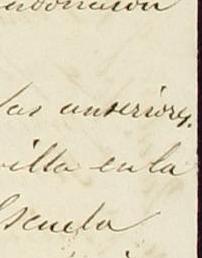 las anteriores.
villa en la
Escuela